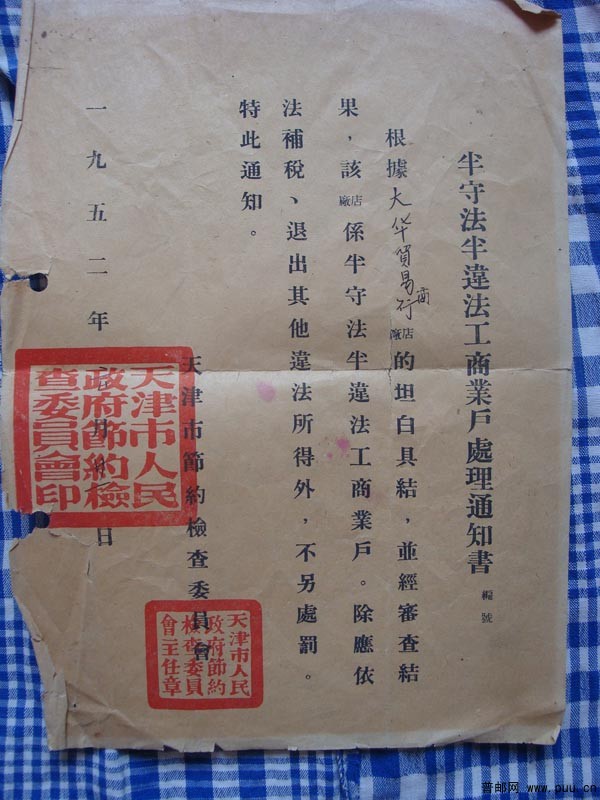 半守法半違法工商業戶處理通知書 編號
根據大华貿易商行廠店的坦白具結，並經審查結
果，該廠店係半守法半違法工商業戶。除應依
法補稅、退出其他違法所得外，不另處罰。
特此通知。
天津市節約檢查委員會
一九五二年 月 日
天津市人民
政府節約檢
查委員會印
天津市人民
政府節約
檢查委員
會主任章
普邮网 www.puu.cn